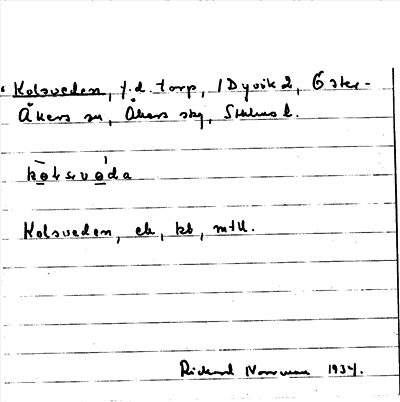 Kolsveden, f.d. torp, 1 Dyvik 2, Öster-
Åkers sn, Åkers skg, Sthlms l.
Kolsveden, ek, kb, mtl.
Rickard 1934.